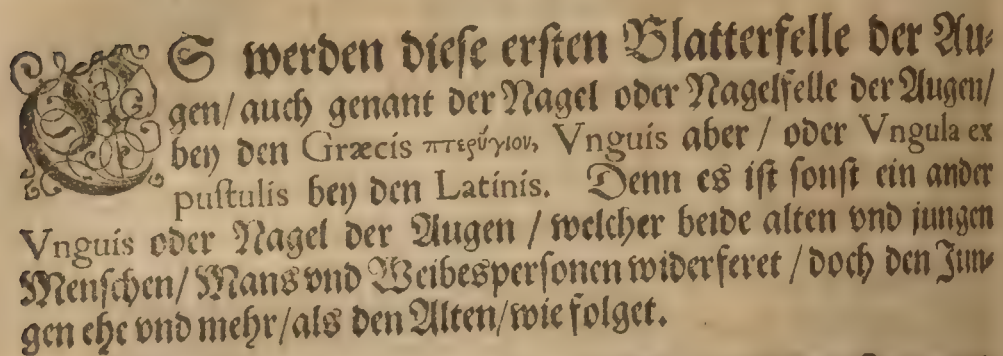 ES werden diese ersten Blatterfelle der Au-
gen/ auch genant der Nagel oder Nagelfelle der Augen/
bey den Græcis πτερύγιον, Vnguis aber / oder Vngula ex
pustulis bey den Latinis. Denn es ist sonst ein ander
Vnguis oder Nagel der Augen / welcher beide alten vnd jungen
Menschen/ Mans vnd Weibespersonen widerferet / doch den Jun-
gen ehe vnd mehr/ als den Alten/ wie folget.